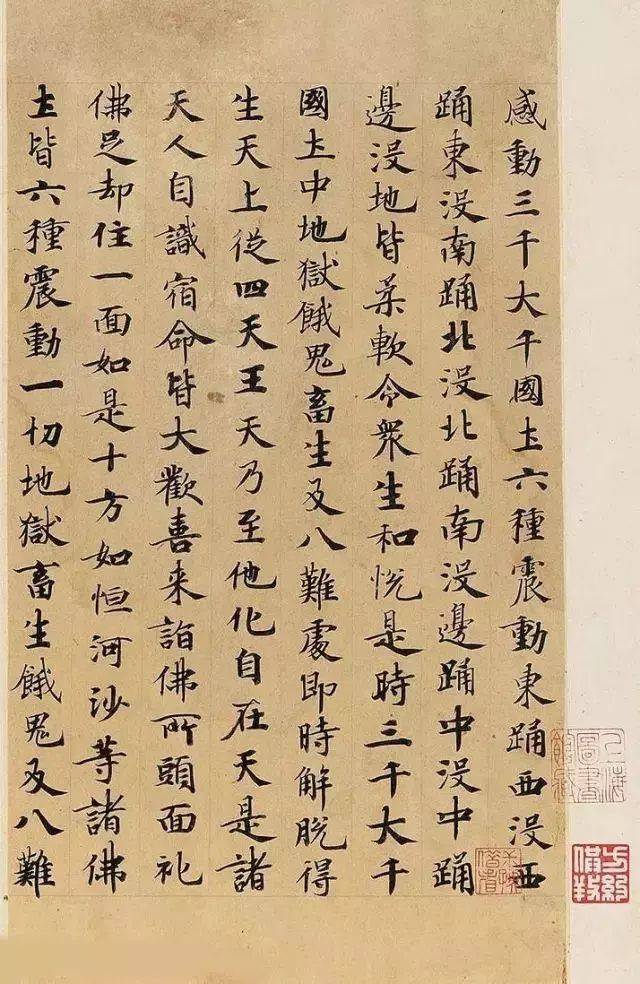 感動三千大千國圡六種震動東踊西没西
踊東没南踊北没北踊南没邊踊中没中踊
邊没地皆柔軟令衆生和悅是時三千大千
國圡中地獄餓鬼畜生及八難處即時解脫得
生天上從四天王天乃至他化自在天是諸
天人自識宿命皆大歡喜来詣佛所頭面礼
佛足却住一面如是十方如恒河沙等諸佛
圡皆六種震動一切地獄畜生餓鬼及八難
上海圖書館藏